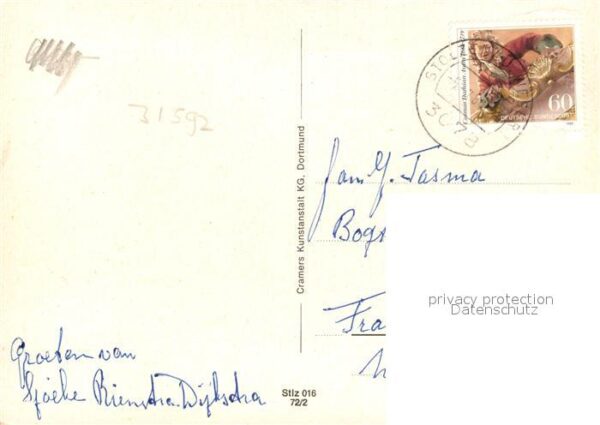 31592
60
DEUTSCHE BUNDESPOST
Cramers Kunstanstalt KG. Dortmund
Fam. Y. Tasma
Bogs
Fra
privacy protection
Datenschutz
Groeten van
Sjoeke Rienstra-Dijkstra
Stlz 016
72/2